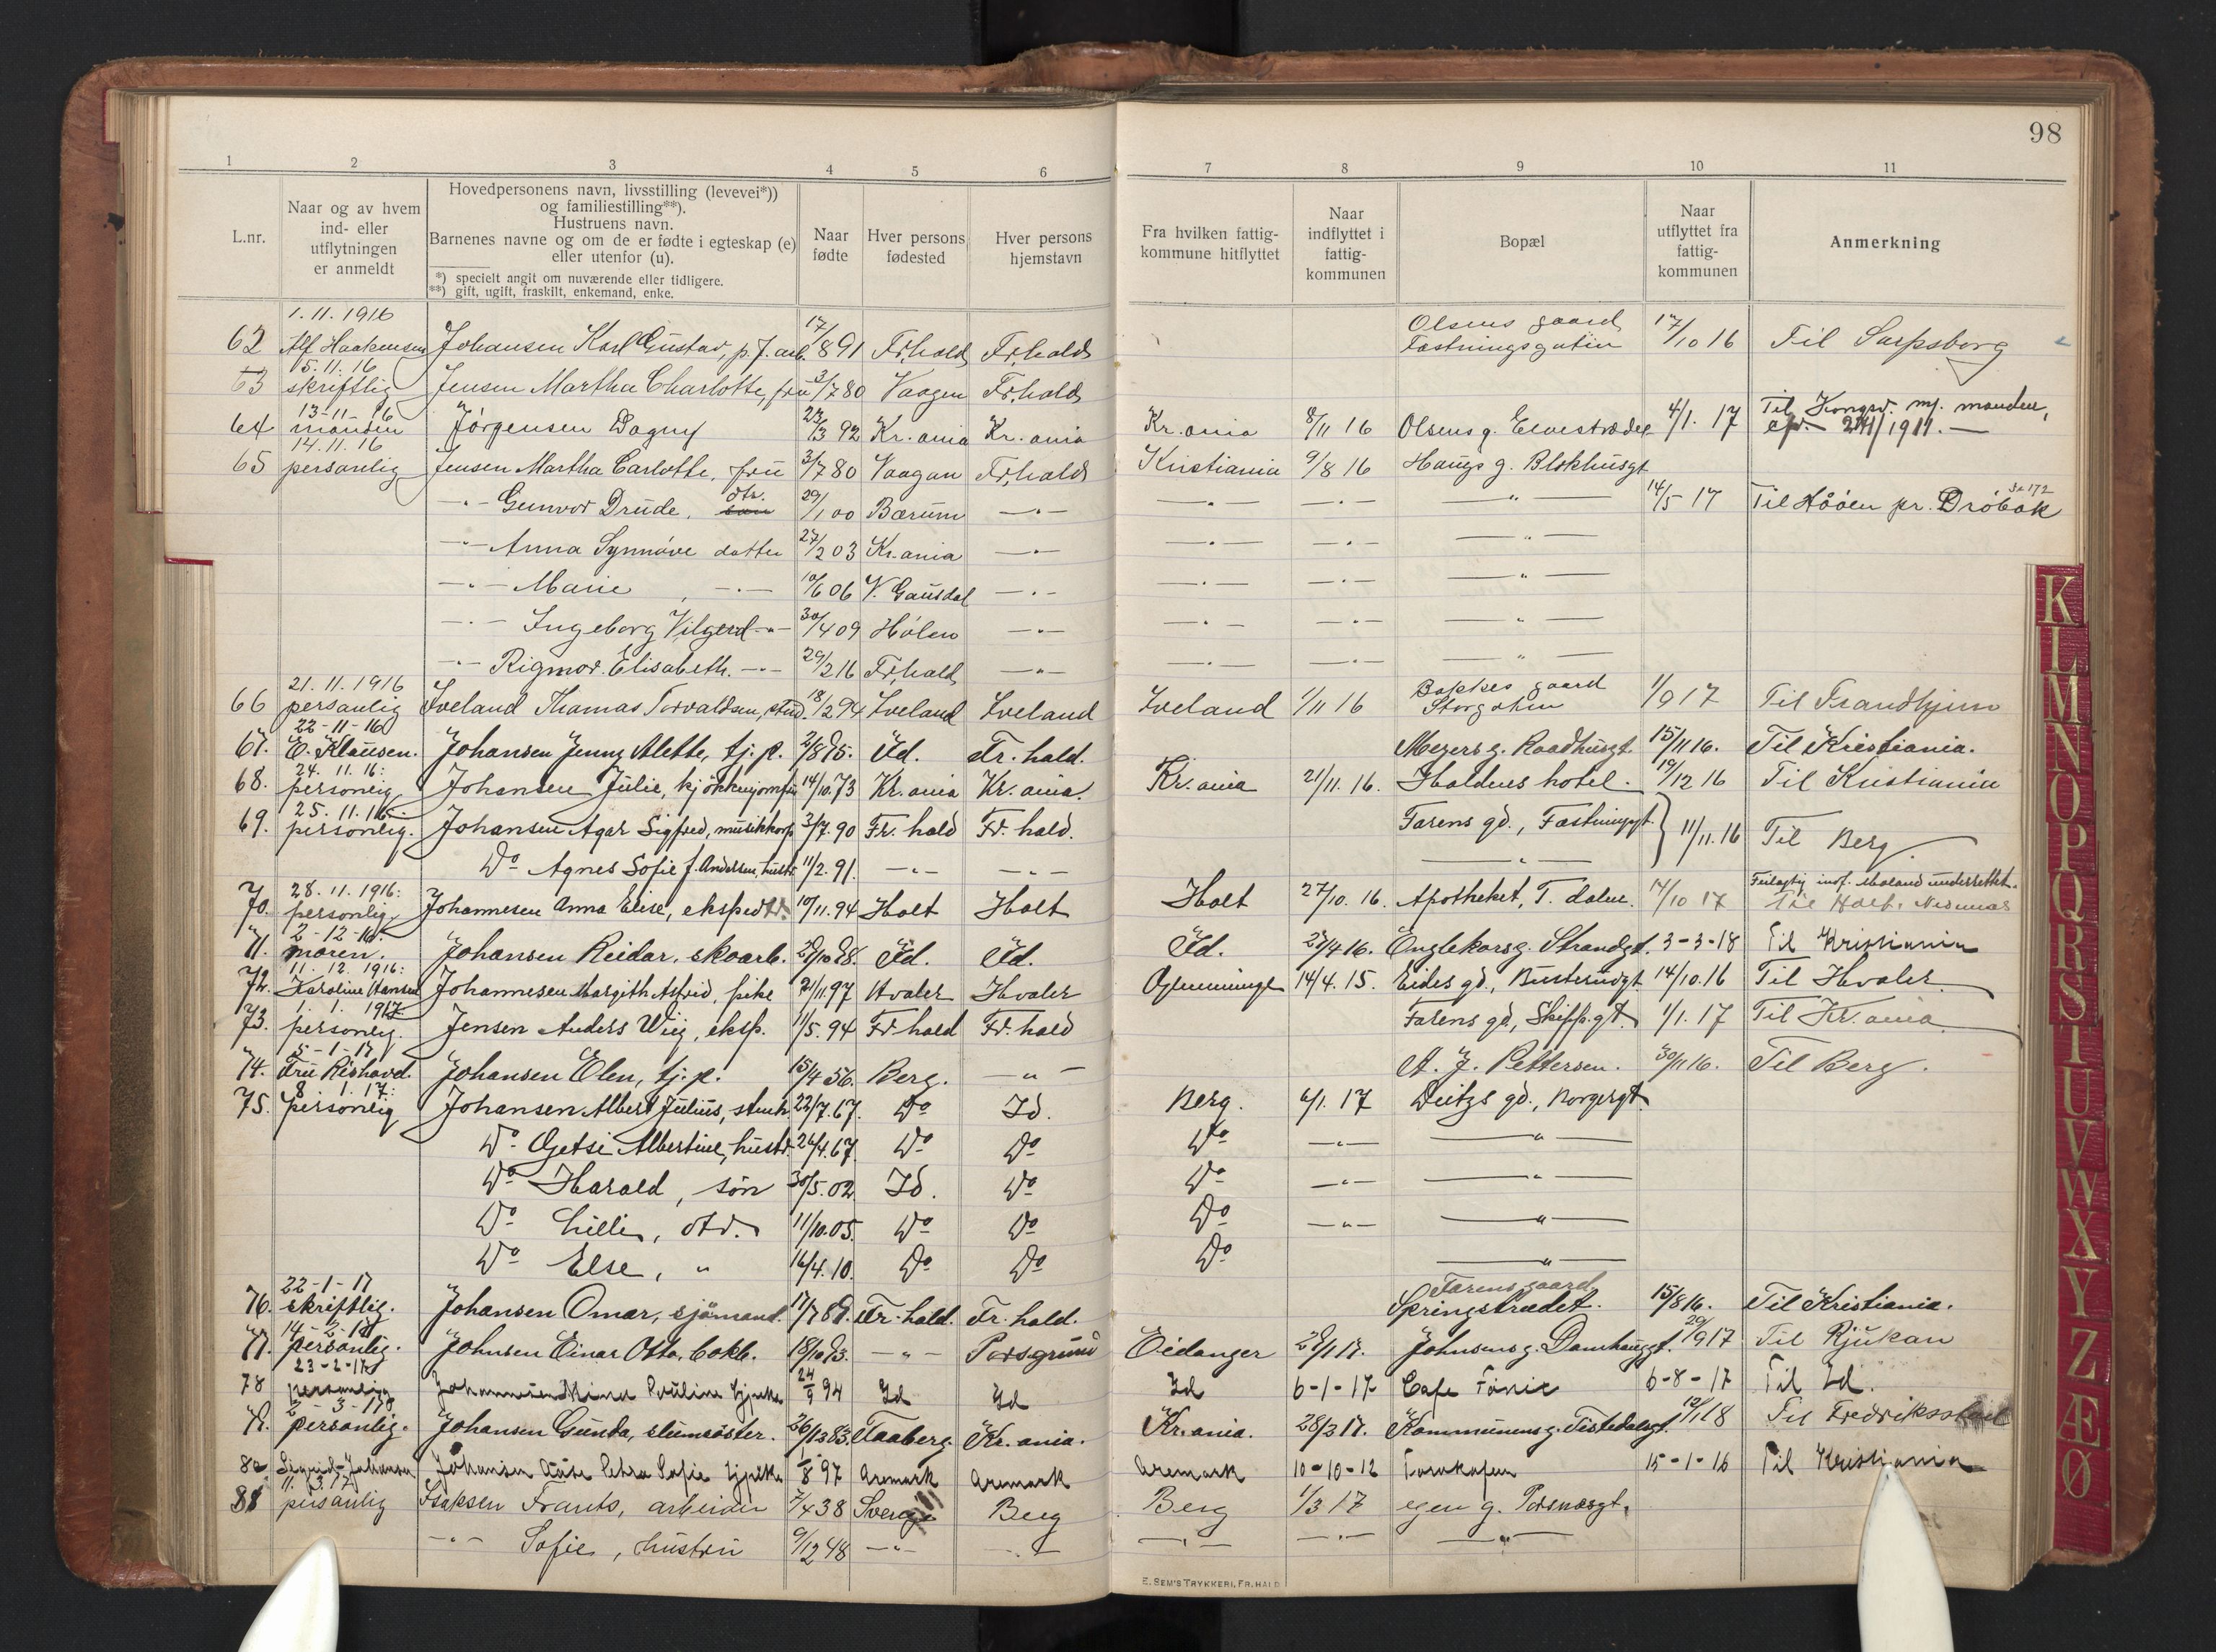 98
1 2 3 4 5 6 7 8 9 10 11
L.nr.
Naar og av hvem
ind- eller
utflytningen
er anmeldt
Hovedpersonens navn, livsstilling (levevei*))
og familiestilling**).
Hustruens navn.
Barnenes navne og om de er fødte i egteskap (e)
eller utenfor (u).
*) specielt angit om nuværende eller tidligere.
**) gift, ugift, fraskilt, enkemand, enke.
Naar
fødte
Hver persons
fødested
Hver persons
hjemstavn
Fra hvilken fattig-
kommune hitflyttet
Naar
indflyttet i
fattig-
kommunen
Bopæl
Naar
utflyttet fra
fattig-
kommunen
Anmerkning
1.11.1916 Olsens gaard
62 Alf Haakensen Johansen Karl Gustav, p. J. arb. 17/8 91 Fr.hald Fr.hald Fæstningsgaten 17/10 16 Til Sarpsborg
15.11.16
63 skriftlig Jensen Martha Charlotte, fru 3/7 80 Vaagen Fr.hald
13-11-16 Til Kongsv. mj. manden,
64 manden Jørgensen Dagny 23/3 92 Kr.ania Kr.ania Kr.ania 8/11 16 Olsens g. Elvestrædet 4/1. 17
14.11.16
65 personlig Jensen Martha Carlotte, frü 3/7 80 Vaagan Fr.hald Kristiania 9/8 16 Haugs g. Blokhusgt
-"- Gunvor Drude, dtr. 29/1 00 Bærum -"- -"- -"- -"- 14/5 17 Til Hååen pr. Drøbak
-"- Anna Synnøve datter 27/2 03 Kr.ania -"- -"- -"- -"-
-"- Marie, -"- 10/6 06 V. Gausdal -"- -"- -"- -"-
-"- Ingeborg Vilgerd -"- 30/4 09 Hölen -"- -"- -"- -"-
-"- Rigmor Elisabeth. -"- 29/2 16 Fr,hald -"- -"- -"- -"-
21.11.1916 Bakkes gaard
66 personlig Iveland Thomas Torvaldsen, stud. 18/2 94 Iveland Iveland Iveland 1/11 16 Storgaten 1/9 17 Til Trandhjem
22-11-16
67. E. Klausen. Johansen Jenny Alette, tj. p. 2/8 95. Id. Fr.hald. Meyers g. Raadhusgt. 15/11 16. Til Kristiania.
24.11.16:
68. personlig Johansen Julie, kjøkkenjomfru 14/10.73 Kr.ania Kr.ania. Kr.ania 21/11.16. Haldens hotel. 19/12 16 Til Kristiania
25.11.16.
69. personlig. Johansen Agar Sigfred, musikkorp. 3/7.90 Fr. hald Fr. hald. Farens gd., Fæstningsgt. 11/11.16 Til Berg
Do Agnes Sofie f. Andersen, hustr. 11/2.91. -"- -"- -"-
28.11.1916: Feilagtig inf. Moland underrettet.
70. personlig. Johannesen Anna Elise, eksped. 10/11.94 Holt Holt Holt 27/10.16. Apotheket, T. dalen. 14/10 17 Til Holt, Nedenæs
2-12-16.
71. moren. Johansen Reidar, skoarb. 29/10 98. Id. Id. Id. 29/4 16. Englekorsg. Strandgt. 3-3-18 Til Kristiania
11.12.1916:
72. Karoline Hansen Johannesen Margith Astrid, pike 21/11.97 Hvaler Hvaler Glemminge 14/4.15. Eides gd., Busterudgt 14/10.16 Til Hvaler
1.1.1917
73. personlig. Jensen Anders Wiig, eksp. 11/5.94 Fr hald Fr. hald Farens gd, Skipp.gt. 1/1.17 Til Kr.ania
5-1-17
74. Fru Rishavd. Johansen Elen, tj. p. 15/4 56. Berg. -"- A. J. Pettersen. 30/11 16. Til Berg.
8.1.17:
75. personlig Johansen Albert Julius, stenh. 22/7.67. Do Id. Berg. 6/1.17 Weitzs gd., Borgergt
Do Getsi Albertine, hustr. 26/4.67. Do Do Do -"- -"-
Do Harald, søn 30/5.02. Id. Do Do -"- -"-
Do Lilli, dtr. 11/10.05. Do Do Do -"- -"-
Do Else, " 16/4.10. Do Do Do -"-
22-1-17 Farens gaard
76. skriftlig. Johansen Omar, sjömand. 17/7 89. Fr.hald. Fr.hald. Springstrædet. 15/8 16. Til Kristiania.
14-2-17
77. personlig. Johnsen Einar Otto, bokb. 18/10 93. -"- Porsgrund Eidanger 29/1 17. Johnsens g. Damhaugt. 29/9 17 Til Rjukan
23-2-17
78 personlig Johannesen Mina Pauline tjpike 24/9 94 Id Id Id 6-1-17 Cafe Tönic 6-8-17 Til Id.
2-3-17
79. personlig. Johansen Gunda, slumsöster. 26/12 83. Faaberg. Kr.ania. Kr.ania. 28/2 17. Kommunens g. Tistedalsgt. 18 Til Fredriksstad
80 Sigrid Johansen Johansen Aase Petra Sofie tjpike 8 97 Aremark Aremark Aremark 10-10-12 15-1-16 Til Kristiania
11.3.17
81 personlig Isaksen Frants, arbeider 7/4 38 Sverige Berg Berg 1/3 17 egen g. Posnæsgt.
-"- Sofie, hustru 9/12 48 -"- -"- -"- -"- -"-
E. SEM'S TRYKKERI, FR.HALD
K
L
M
N
O
P
Q
R
S
T
U
V
W
X
Y
Z
Æ
Ø